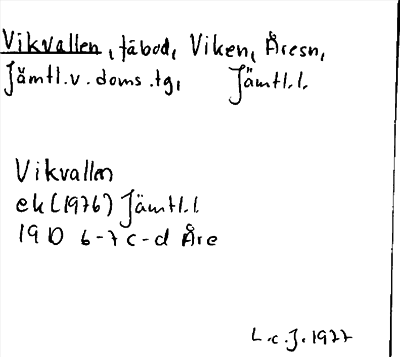 Vikvallen, fäbod, Viken, Åresn,
Jämtl.v.doms.tg, Jämtl.l.
Vikvallen
ek (1976) Jämtl.l
19D 6-7 c-d Åre
L.c.J. 1977